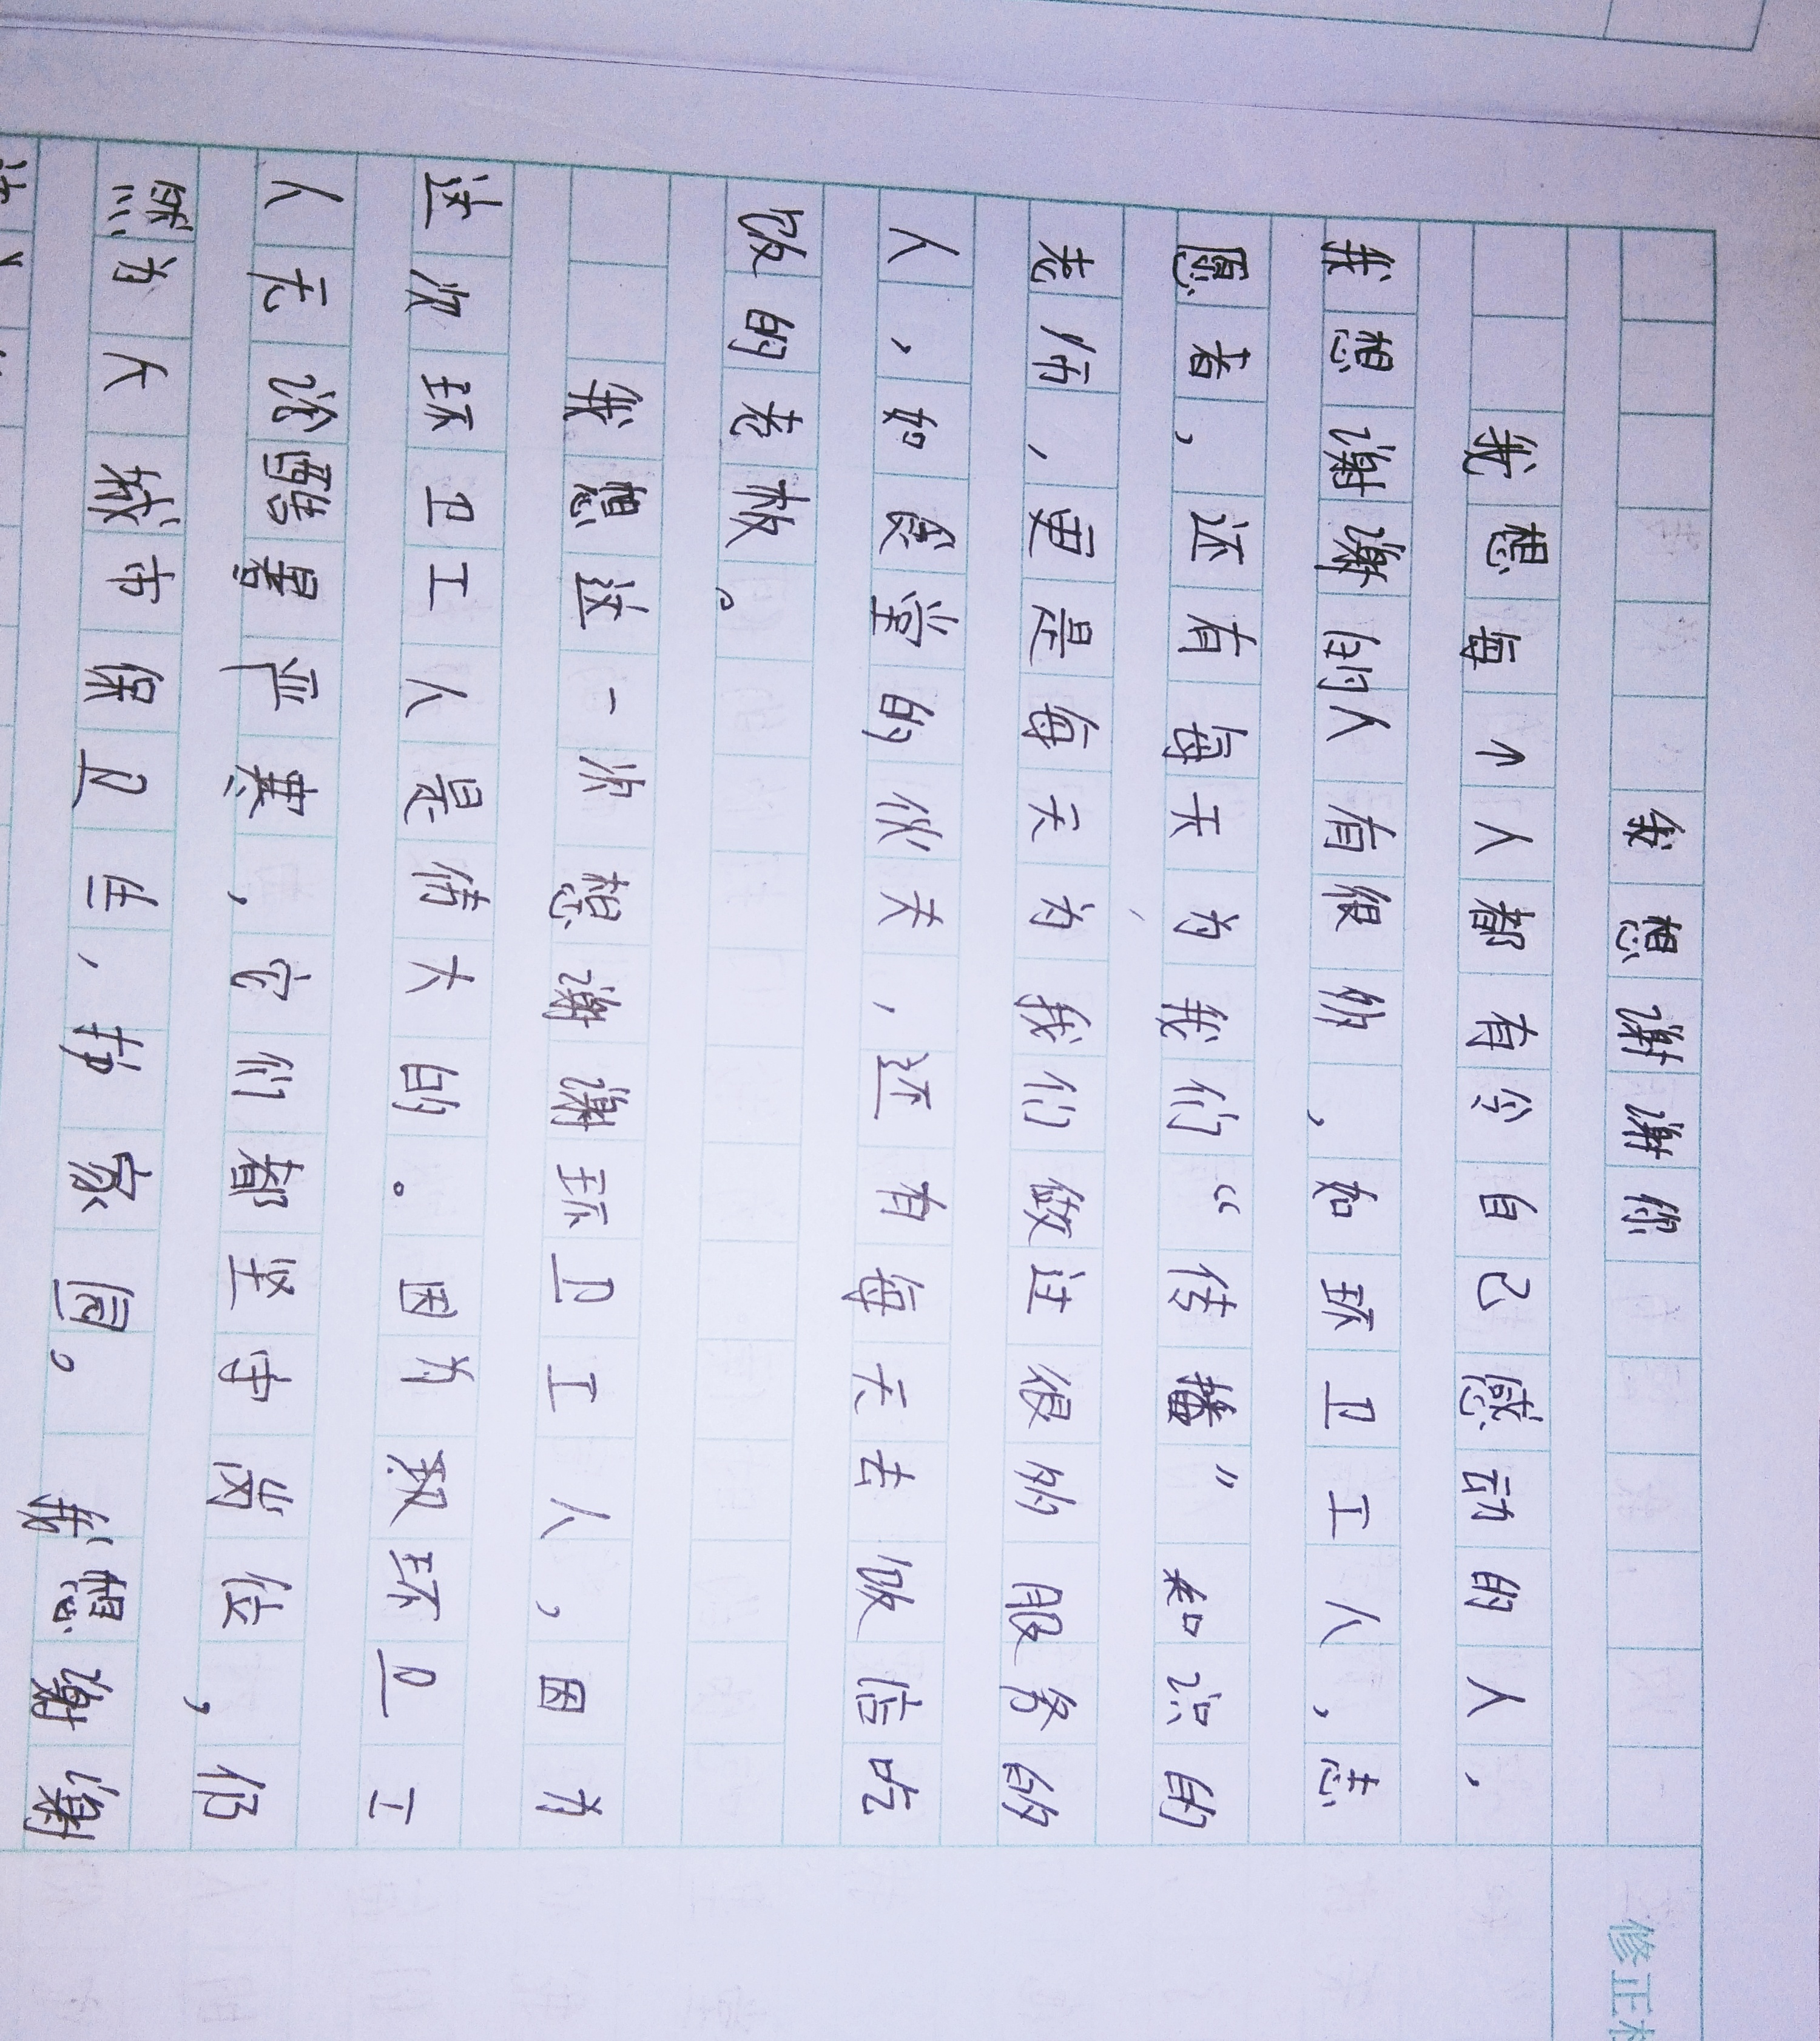 我想谢谢你
我想每个人都有令自己感动的人,
我想谢谢的人有很多,如环卫工人,志
愿者,还有每天为我们“传播”知识的
老师,更是每天为我们做过很多服务的
人,如食堂的伙夫,还有每天去饭店吃
饭的老板。
我想这一次想谢谢环卫工人,因为
这次环卫工人是伟大的。因为环卫工
人无论酷暑严寒,它们都坚守岗位,仍
然为大保卫家园。我想谢谢
修正